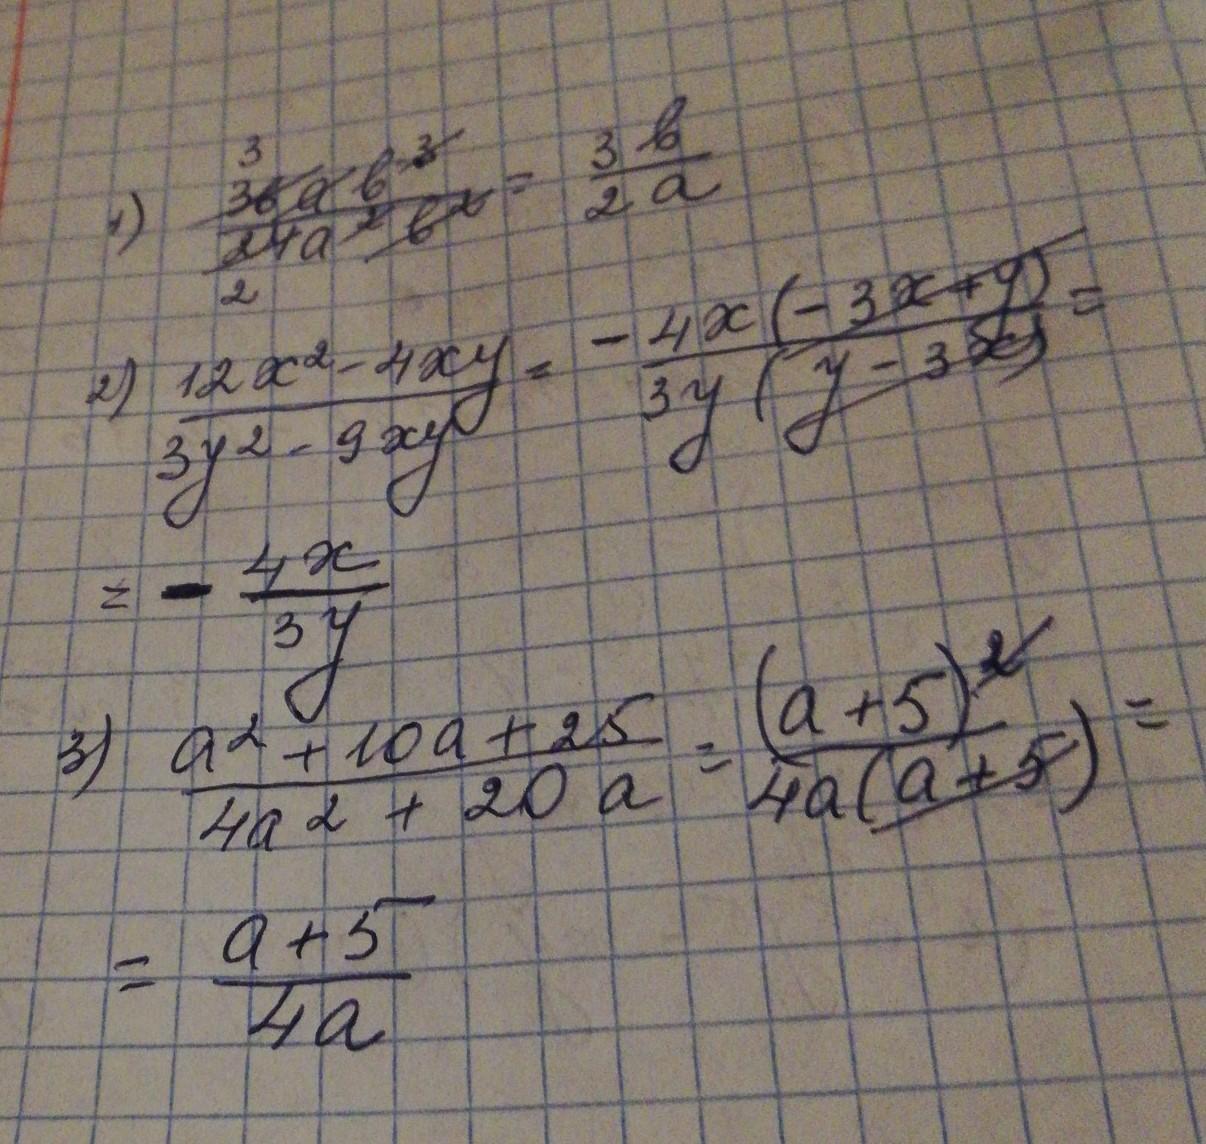 1) 36ab³/24a²b² = 3b/2a
3
2
2) 12x² - 4xy/3y² - 9xy = -4x(-3x+y)/3y(y-3x) =
= - 4x/3y
3) a² + 10a + 25/4a² + 20a = (a+5)²/4a(a+5) =
= a+5/4a